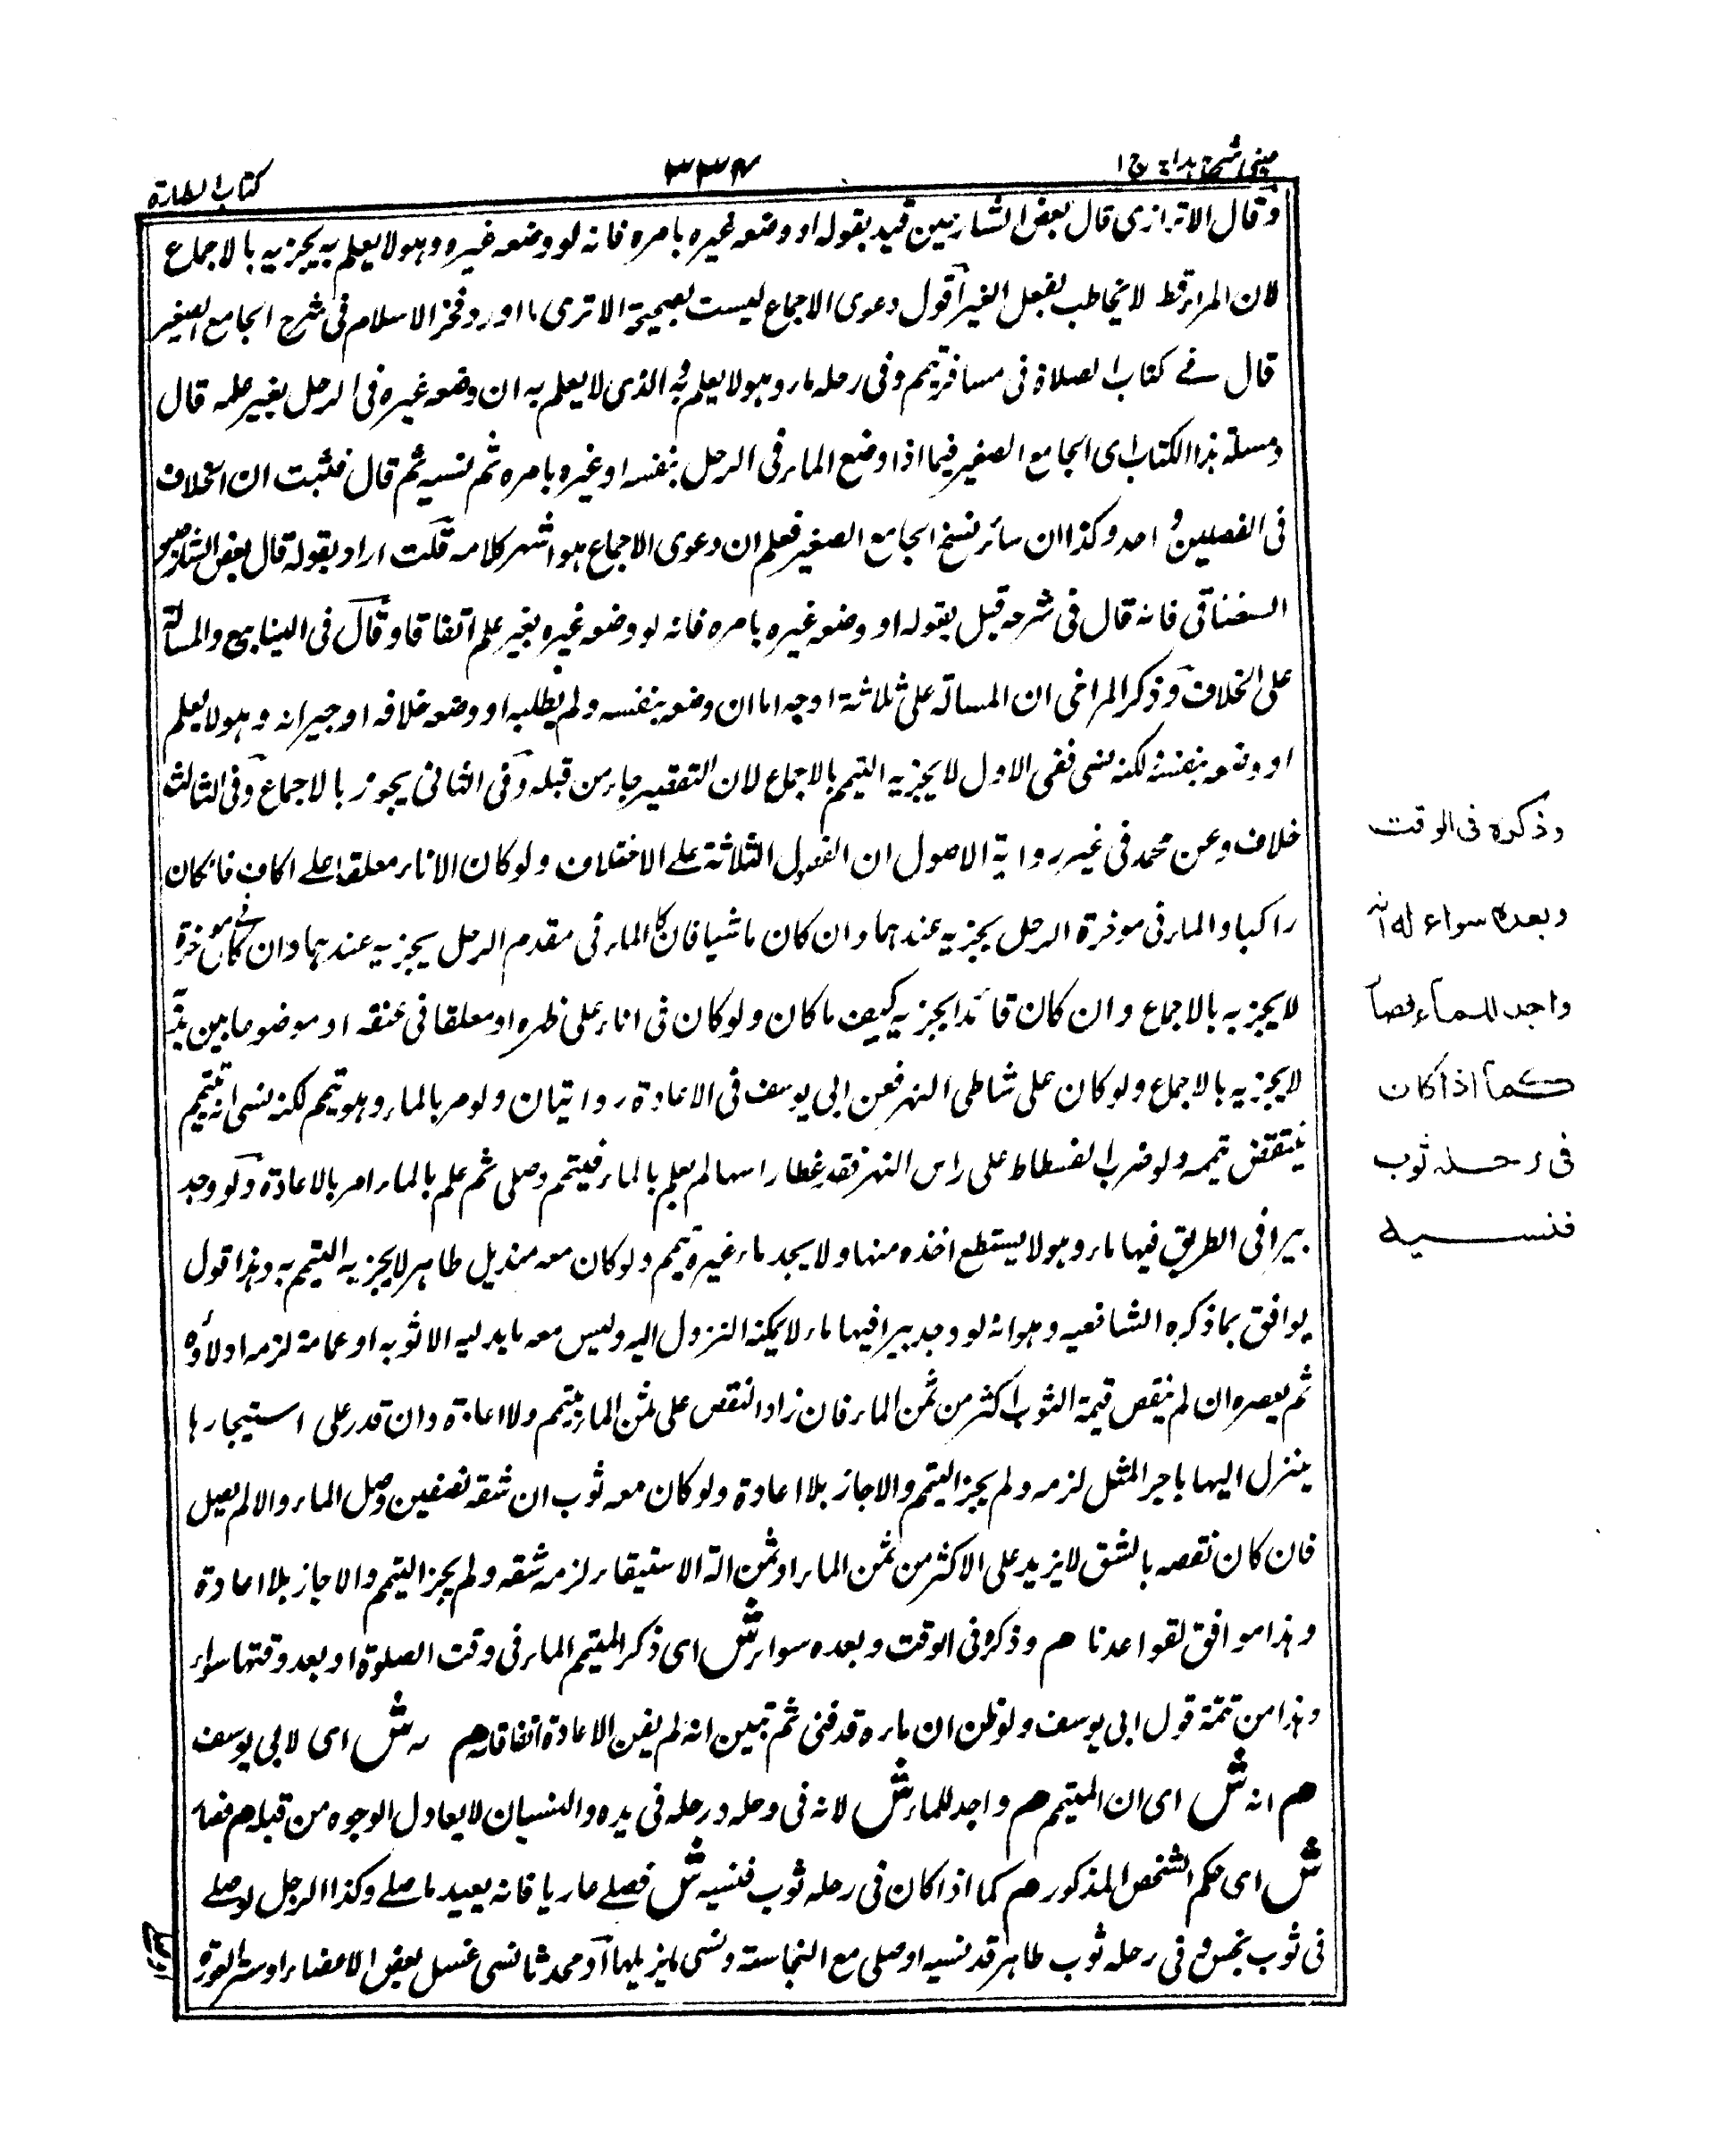 عینی شرح ہدایہ ج ۱
۳۳۴
کتاب الطہارة
وقال الاترازی قال بعض الشارحین قید بقوله او وضعه غیره بامره فانه لو وضعه غیره وہو لا یعلم به یجزیه بالاجماع
لان المرء قط لا یخاطب بفعل الغیر اقول دعوی الاجماع لیست بصحیحة الا تری ما اورد فخر الاسلام فی شرح الجامع الصغیر
قال فے کتاب الصلاة فی مسافر تیمم وفی رحله ماء وہو لا یعلم به الذی لا یعلم به ان وضعه غیره فی الرحل بغیر علمه قال
ومسئلة ہذا الکتاب ای الجامع الصغیر فیما اذا وضع الماء فی الرحل بنفسه او غیره بامره ثم نسیه ثم قال فثبت ان الخلاف
فی الفصلین واحد وکذا ان سائر نسخ الجامع الصغیر فعلم ان دعوی الاجماع ہو اشہر کلامه قلت اراد بقوله قال بعض الشارحین
السغناقی فانه قال فی شرحه قبل بقوله او وضعه غیره بامره فانه لو وضعه غیره بغیر علم اتفاقا وقال فی الینابیع والمسالة
علی الخلاف وذکر المراخی ان المسالة علی ثلاثة اوجه اما ان وضعه بنفسه ولم یطلبه او وضعه خلافه او جیرانه وہو لا یعلم
او وضعه بنفسه لکنه نسی ففی الاول لا یجزیه التیمم بالاجماع لان التقصیر جاء من قبله وفی الثانی یجوز بالاجماع وفی الثالث
خلاف وعن محمد فی غیر روایة الاصول ان الفصول الثلاثة علے الاختلاف ولو کان الاناء معلقا علے اکاف فان کان
راکبا والماء فی موخرة الرحل یجزیه عندہما وان کان ماشیا فان کان الماء فی مقدم الرحل یجزیه عندہما وان کان فی موخرة
لا یجزیه بالاجماع وان کان قائدا یجزیه کیف ما کان ولو کان فی اناء علی ظہره او معلقا فی عنقه او موضوعا بین یدیه
لا یجزیه بالاجماع ولو کان علی شاطی النہر فعن ابی یوسف فی الاعادة روایتان ولو مر بالماء وہو تیمم لکنه نسی انه تیمم
ینتقض تیممه ولو ضرب الفسطاط علی راس النہر فقد غطا راسها لم یعلم بالماء فیتیمم وصلی ثم علم بالماء امر بالاعادة ولو وجد
بیرا فی الطریق فیہا ماء وہو لا یستطع اخذه منہا ولا یجد ماء غیره تیمم ولو کان معه مندیل طاہر لا یجزیه التیمم به وہذا قول
یوافق بما ذکره الشافعیه وہو انه لو وجد بیرا فیہا ماء لا یمکنه النزول الیه ولیس معه ما یدلیه الا ثوبه او عمامة لزمه ادلاؤه
ثم یعصره ان لم ینقص قیمة الثوب اکثر من ثمن الماء فان زاد النقص علی ثمن الماء تیمم ولا اعادة وان قدر علی استیجارہا
ینزل الیہا باجر المثل لزمه ولم یجز التیمم والا جاز بلا اعادة ولو کان معه ثوب ان شقه نصفین وصل الماء والا لم یصل
فان کان نقصه بالشق لا یزید علی الاکثر من ثمن الماء او ثمن الة الاستیقاء لزمه شقه ولم یجز التیمم والا جاز بلا اعادة
وہذا موافق لقواعدنا هم وذکره فی الوقت وبعده سواء ش ای ذکر المتیمم الماء فی وقت الصلوة او بعد وقتہا سواء
وہذا من تتمة قول ابی یوسف ولو ظن ان ماءه قد فنی ثم تبین انه لم یفن الاعادة اتفاقا هم له ش ای لابی یوسف
هم انه ش ای ان المتیمم هم واجد للماء ش لانه فی رحله ورحله فی یده والنسیان لا یعادل الوجوه من قبله هم فصار
ش ای حکم الشخص المذکور هم کما اذا کان فی رحله ثوب فنسیه ش فصلے عاریا فانه یعید ما صلے وکذا الرجل لو صلے
فی ثوب نجس وفی رحله ثوب طاہر قد نسیه او صلی مع النجاسة ونسی ما یزیلہا او محدثا نسی غسل بعض الاعضاء او ستر العورة
وذکره فی الوقت
وبعده سواء له انه
واجد للماء فصار
کما اذا کان
فی رحله ثوب
فنسیه